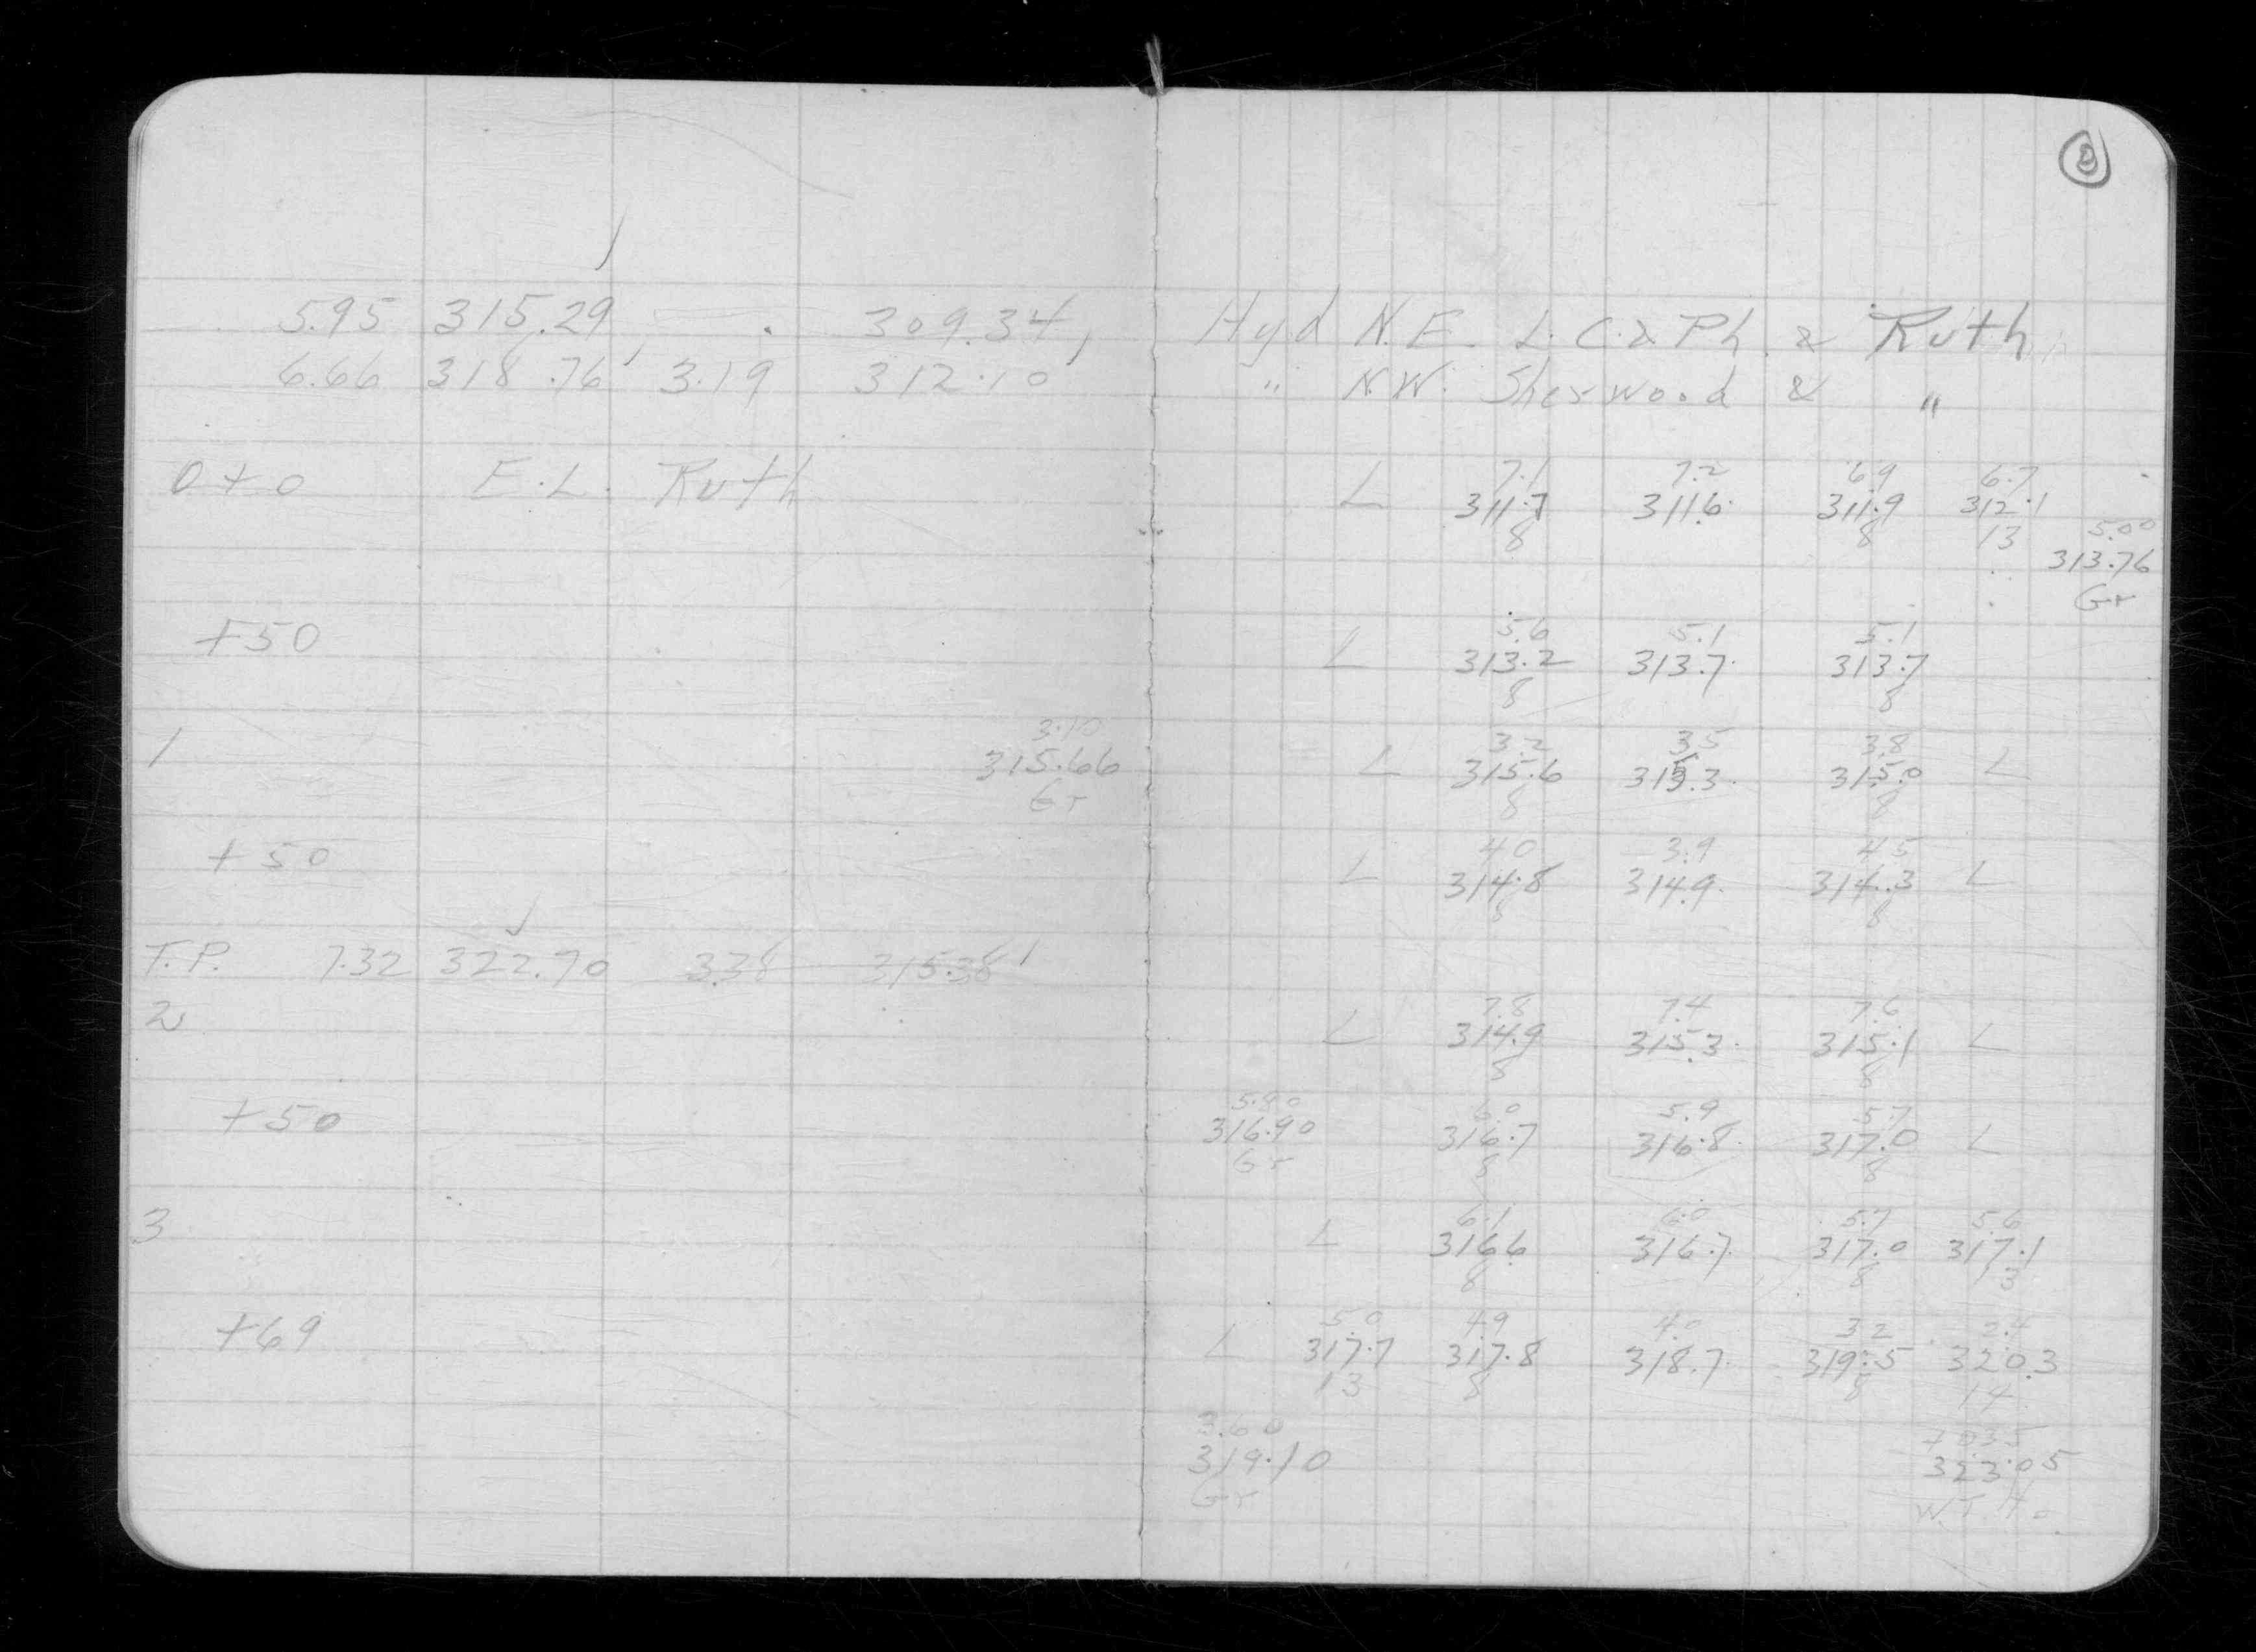 8
5.95 315.29 309.34
6.66 318.76 3.19 312.10
0+0 E.L. Ruth
+50
3.10
1 315.66
Gr
+50
T.P. 7.32 322.70 3.38 315.38
2
+50
3
+69
Hyd N.E. L.C. & Ph. & Ruth
" N.W. Sherwood & "
7.1 7.2 6.9 6.7
L 311.7 311.6 311.9 312.1
8 8 13 5.00
313.76
Gr
5.6 5.1 5.1
L 313.2 313.7 313.7
8 8
3.2 3.5 3.8
L 315.6 315.3 315.0 L
8 8
4.0 3.9 4.5
L 314.8 314.9 314.3 L
8 8
7.8 7.4 7.6
L 314.9 315.3 315.1 L
8 8
5.80 6.0 5.9 5.7
316.90 316.7 316.8 317.0 L
Gr 8 8
6.1 6.0 5.7 5.6
L 316.6 316.7 317.0 317.1
8 8 3
5.0 4.9 4.0 3.2 2.4
L 317.7 317.8 318.7 319.5 320.3
13 8 8 14
3.60 +0.35
319.10 323.05
Gr W.T. Ho